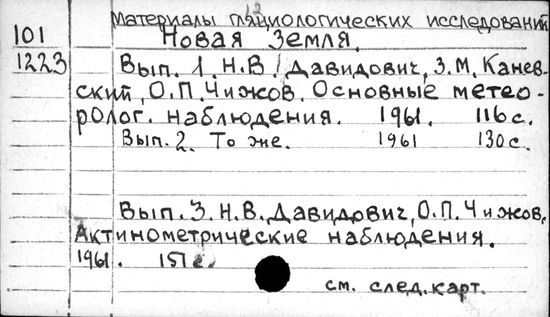 Материалы гляциологических исследований
101 Новая Земля.
1223 Вып. 1. Н.В. Давидович, З.М. Канев-
ский, О.П. Чижов. Основные метео-
ролог. наблюдения. 1961. 116 с.
Вып. 2. То же. 1961 130 с.
Вып. 3. Н.В. Давидович, О.П. Чижов.
Актинометрические наблюдения.
1961. 151 с.
см. след. карт.